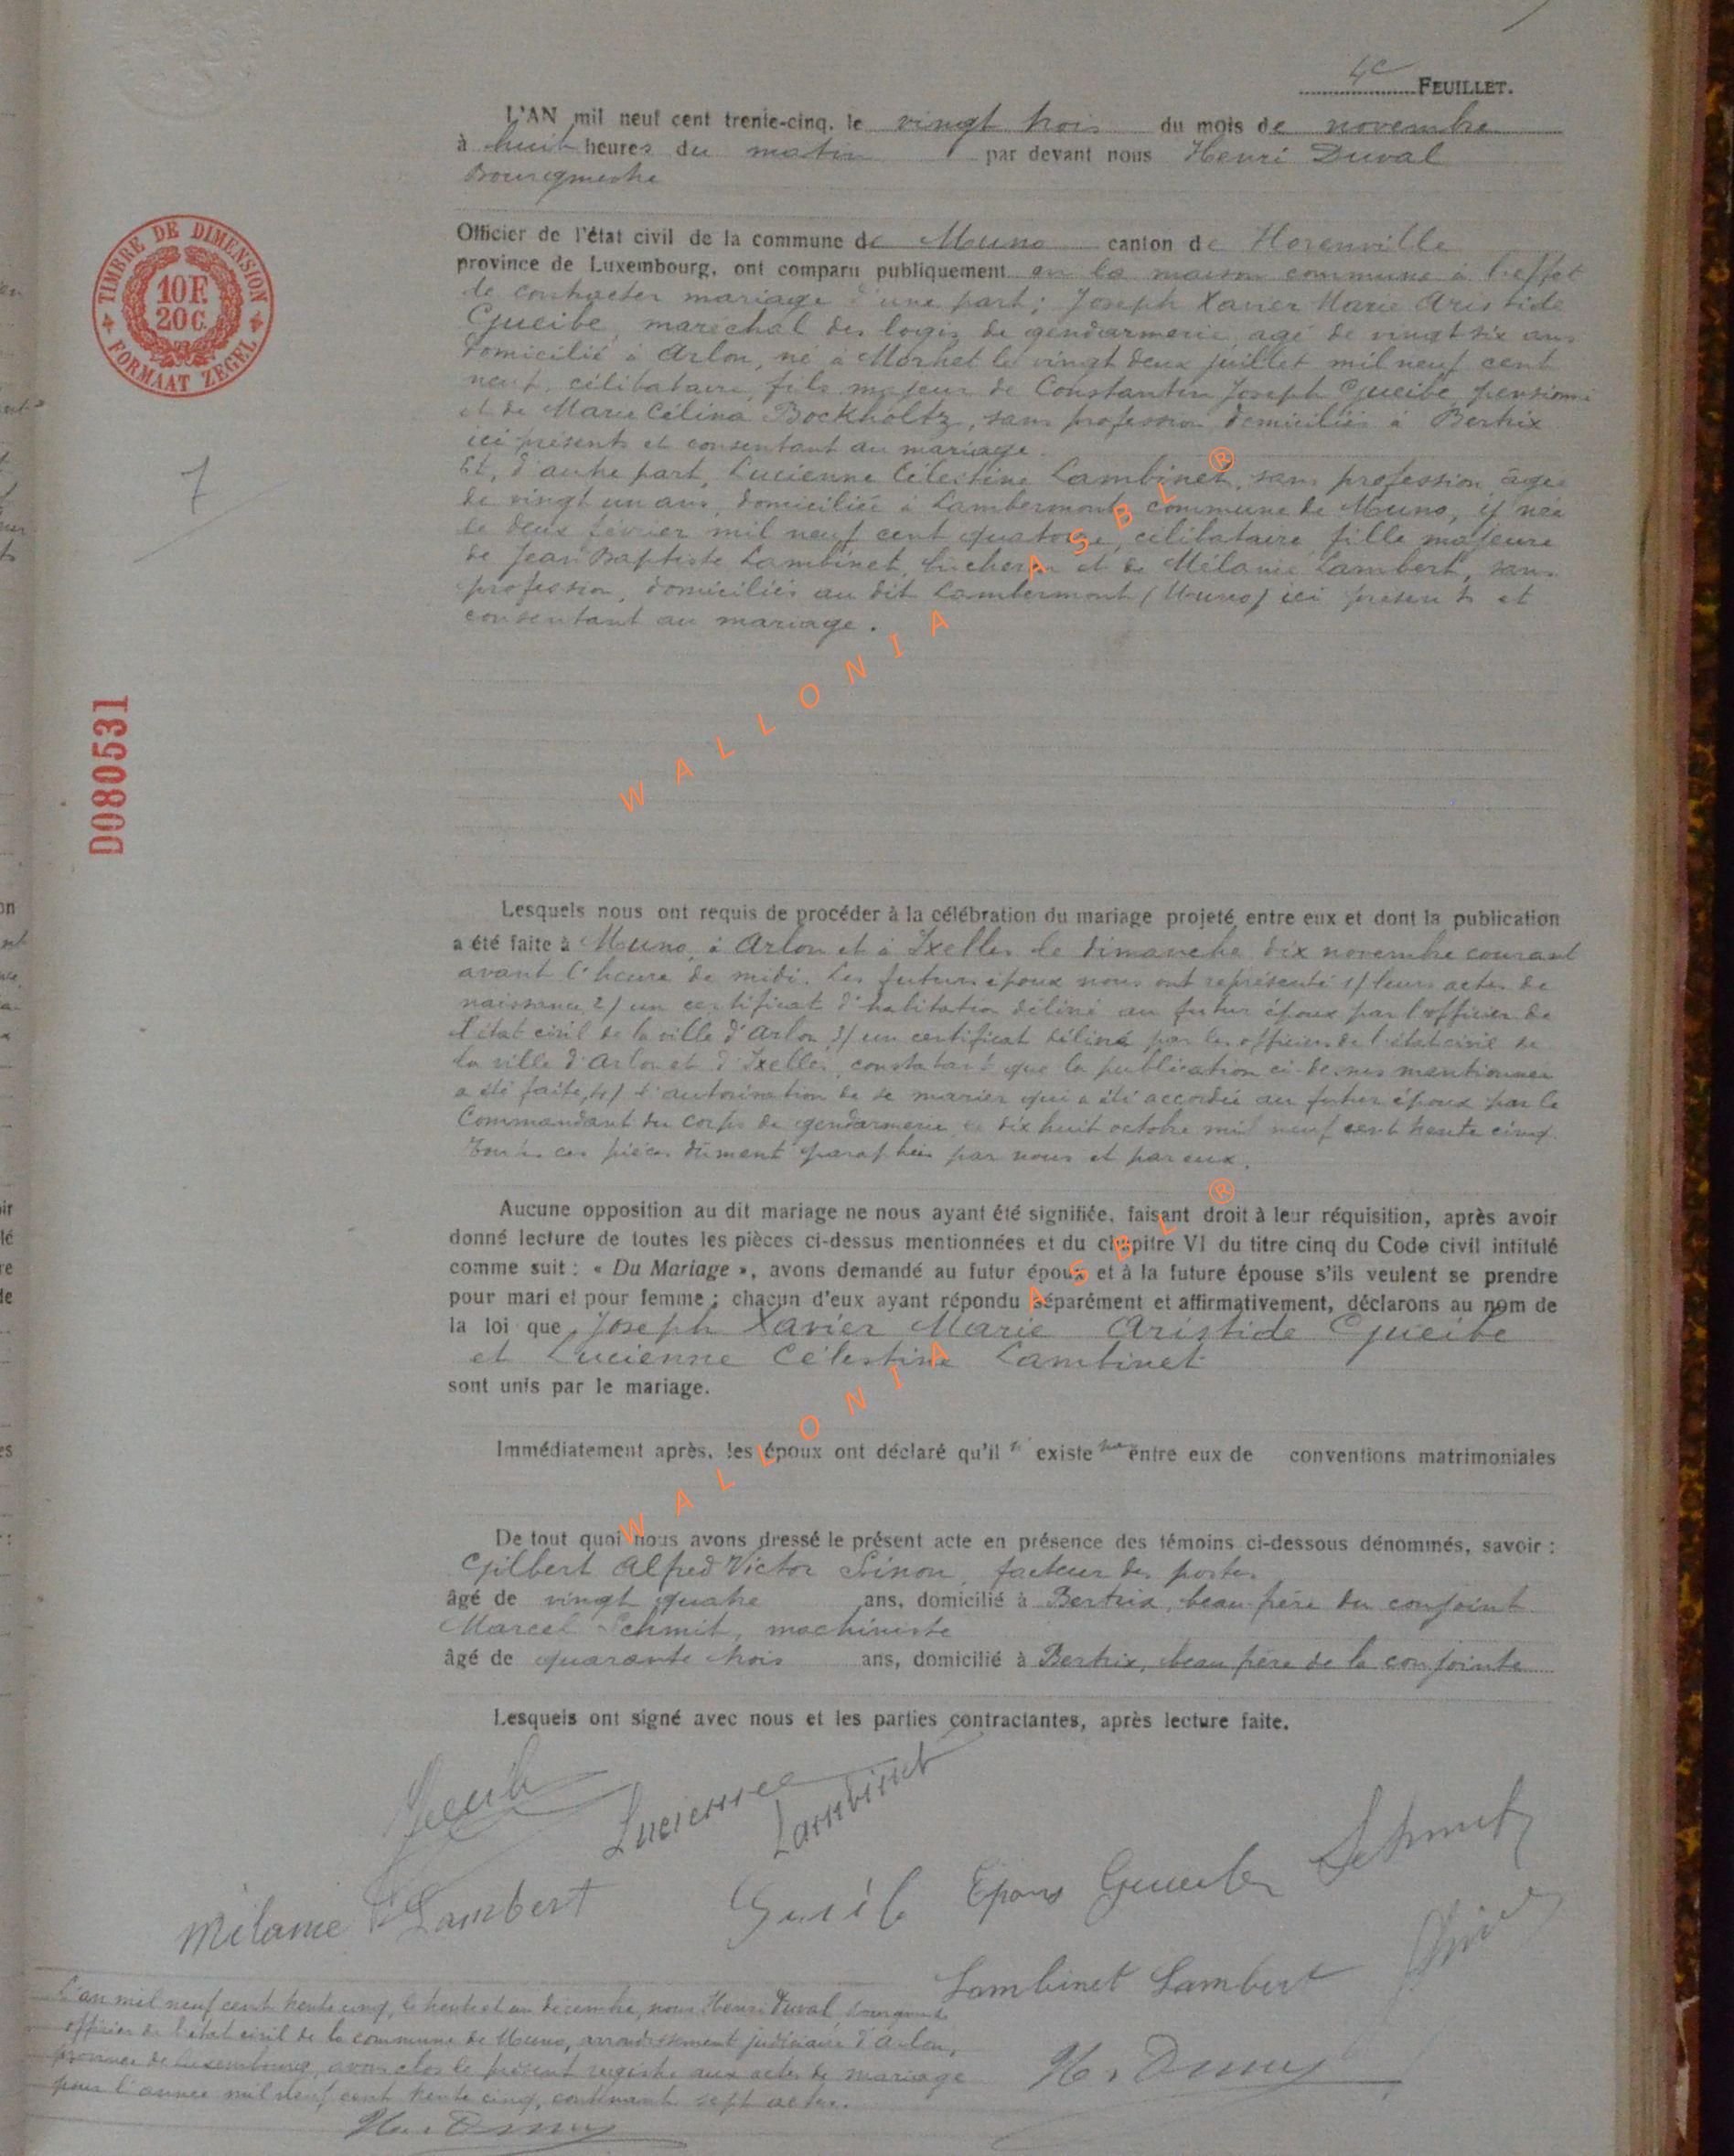 4e FEUILLET.
L'AN mil neuf cent trente-cinq, le vingt trois du mois de novembre
à huit heures du matin par devant nous Henri Duval
Bourgmestre
Officier de l'état civil de la commune de Muno canton de Florenville
province de Luxembourg, ont comparu publiquement en la maison commune à l'effet
de contracter mariage d'une part; Joseph Xavier Marie Aristide
Gueibe, maréchal des logis de gendarmerie, agé de vingt six ans
domicilié à Arlon, né à Morhet le vingt deux juillet mil neuf cent
neuf, célibataire, fils majeur de Constantin Joseph Gueibe, pensionné
et de Marie Célina Bockholtz, sans profession, domiciliés à Bertrix
ici présents et consentant au mariage.
Et, d'autre part, Lucienne Célestine Lambinet, sans profession, âgée
de vingt un ans, domiciliée à Lambermont, commune de Muno, y née
le deux février mil neuf cent quatorze, célibataire, fille majeure
de Jean Baptiste Lambinet, bucheron et de Mélanie Lambert, sans
profession, domiciliés au dit Lambermont (Muno) ici présents et
consentant au mariage.
TIMBRE DE DIMENSION
10 F.
20 C.
FORMAAT ZEGEL
7
D080531
WALLONIA ASBL ®
Lesquels nous ont requis de procéder à la célébration du mariage projeté entre eux et dont la publication
a été faite à Muno, à Arlon et à Ixelles le dimanche dix novembre courant
avant l'heure de midi. Les futurs époux nous ont représenté 1/ leurs actes de
naissance 2/ un certificat d'habitation délivré au futur époux par l'officier de
l'état civil de la ville d'Arlon 3/ un certificat délivré par les officiers de l'état civil de
la ville d'Arlon et d'Ixelles, constatant que la publication ci-dessus mentionnée
a été faite, 4/ l'autorisation de se marier qui a été accordée au futur époux par le
Commandant du Corps de gendarmerie le dix huit octobre mil neuf cent trente cinq.
Toutes ces pièces dûment paraphées par nous et par eux.
Aucune opposition au dit mariage ne nous ayant été signifiée, faisant droit à leur réquisition, après avoir
donné lecture de toutes les pièces ci-dessus mentionnées et du chapitre VI du titre cinq du Code civil intitulé
comme suit : « Du Mariage », avons demandé au futur époux et à la future épouse s'ils veulent se prendre
pour mari et pour femme ; chacun d'eux ayant répondu séparément et affirmativement, déclarons au nom de
la loi que Joseph Xavier Marie Aristide Gueibe
et Lucienne Célestine Lambinet
sont unis par le mariage.
WALLONIA ASBL ®
Immédiatement après, les époux ont déclaré qu'il n' existe pas entre eux de conventions matrimoniales
De tout quoi nous avons dressé le présent acte en présence des témoins ci-dessous dénommés, savoir :
Gilbert Alfred Victor Sinon, facteur des postes
âgé de vingt quatre ans, domicilié à Bertrix, beau frère du conjoint
Marcel Schmit, machiniste
âgé de quarante trois ans, domicilié à Bertrix, beau frère de la conjointe
Lesquels ont signé avec nous et les parties contractantes, après lecture faite.
Gueibe
Lucienne Lambinet
Schmit
Mélanie Lambert
Gueibe
Epous Gueibe
Lambinet Lambert
L'an mil neuf cent trente cinq, le trente et un décembre, nous Henri Duval, bourgmestre
officier de l'état civil de la commune de Muno, arrondissement judiciaire d'Arlon,
province de Luxembourg, avons clos le présent registre aux actes de mariage
pour l'année mil neuf cent trente cinq, contenant sept actes.
H. Duval
H. Duval